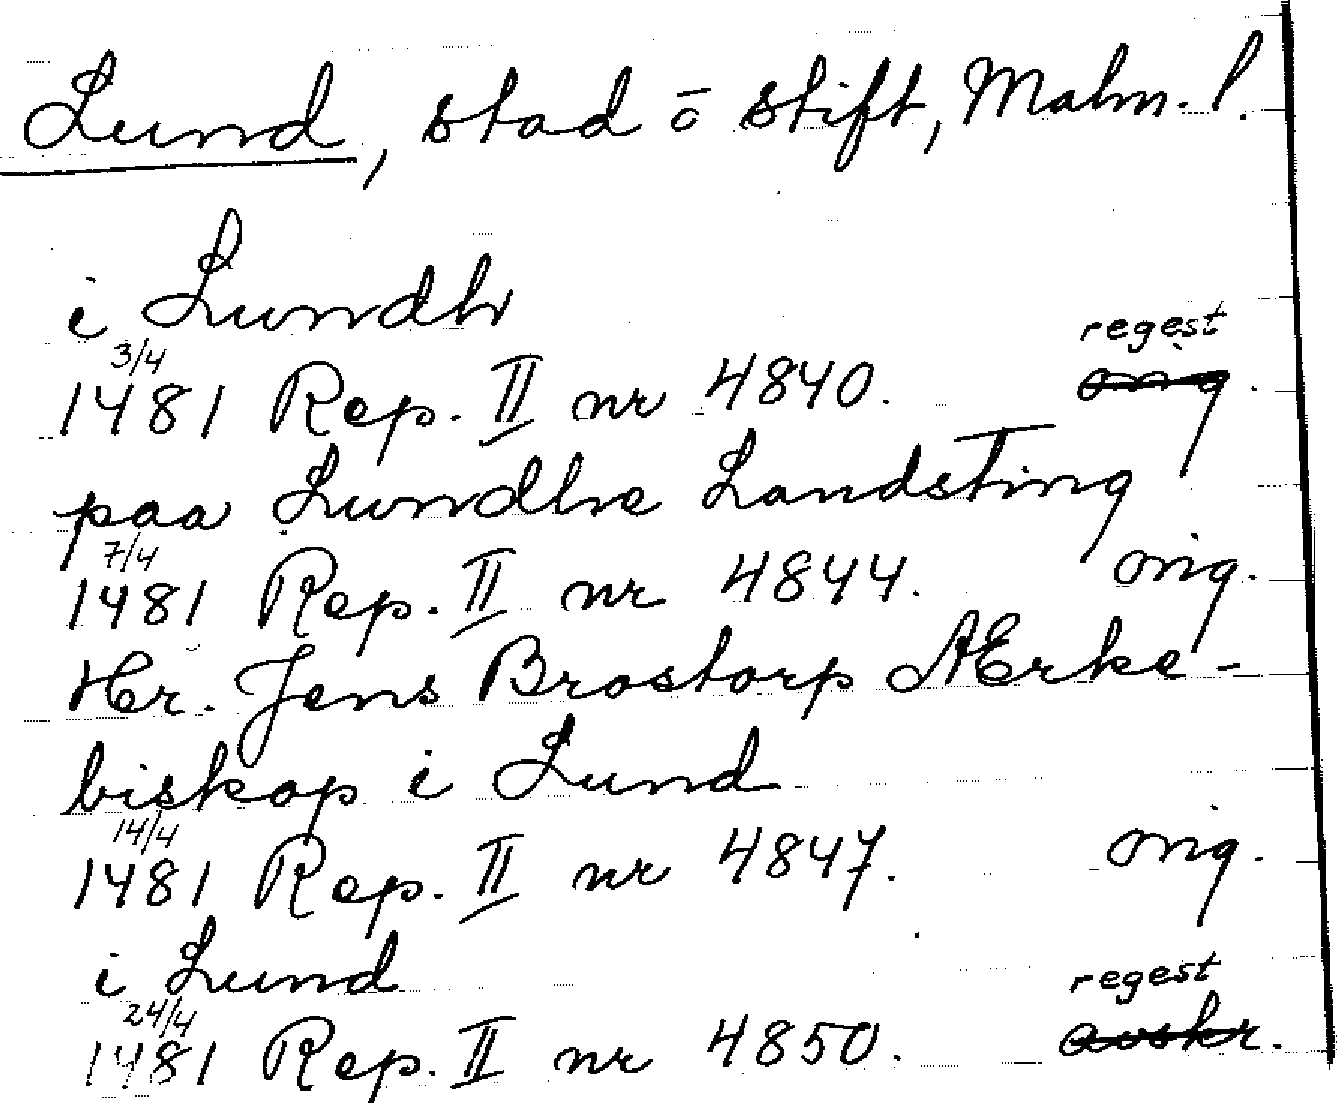 Lund, stad ō stift, Malm. l.
i Lundh
3/4 regest
1481 Rep. II nr 4840. orig.
paa Lundhe Landsting
7/4
1481 Rep. II nr 4844. orig.
Hr. Jens Brostorp AErke-
biskop i Lund
14/4
1481 Rep. II nr 4847. orig.
i Lund
24/4 regest
1481 Rep. II nr 4850. avskr.